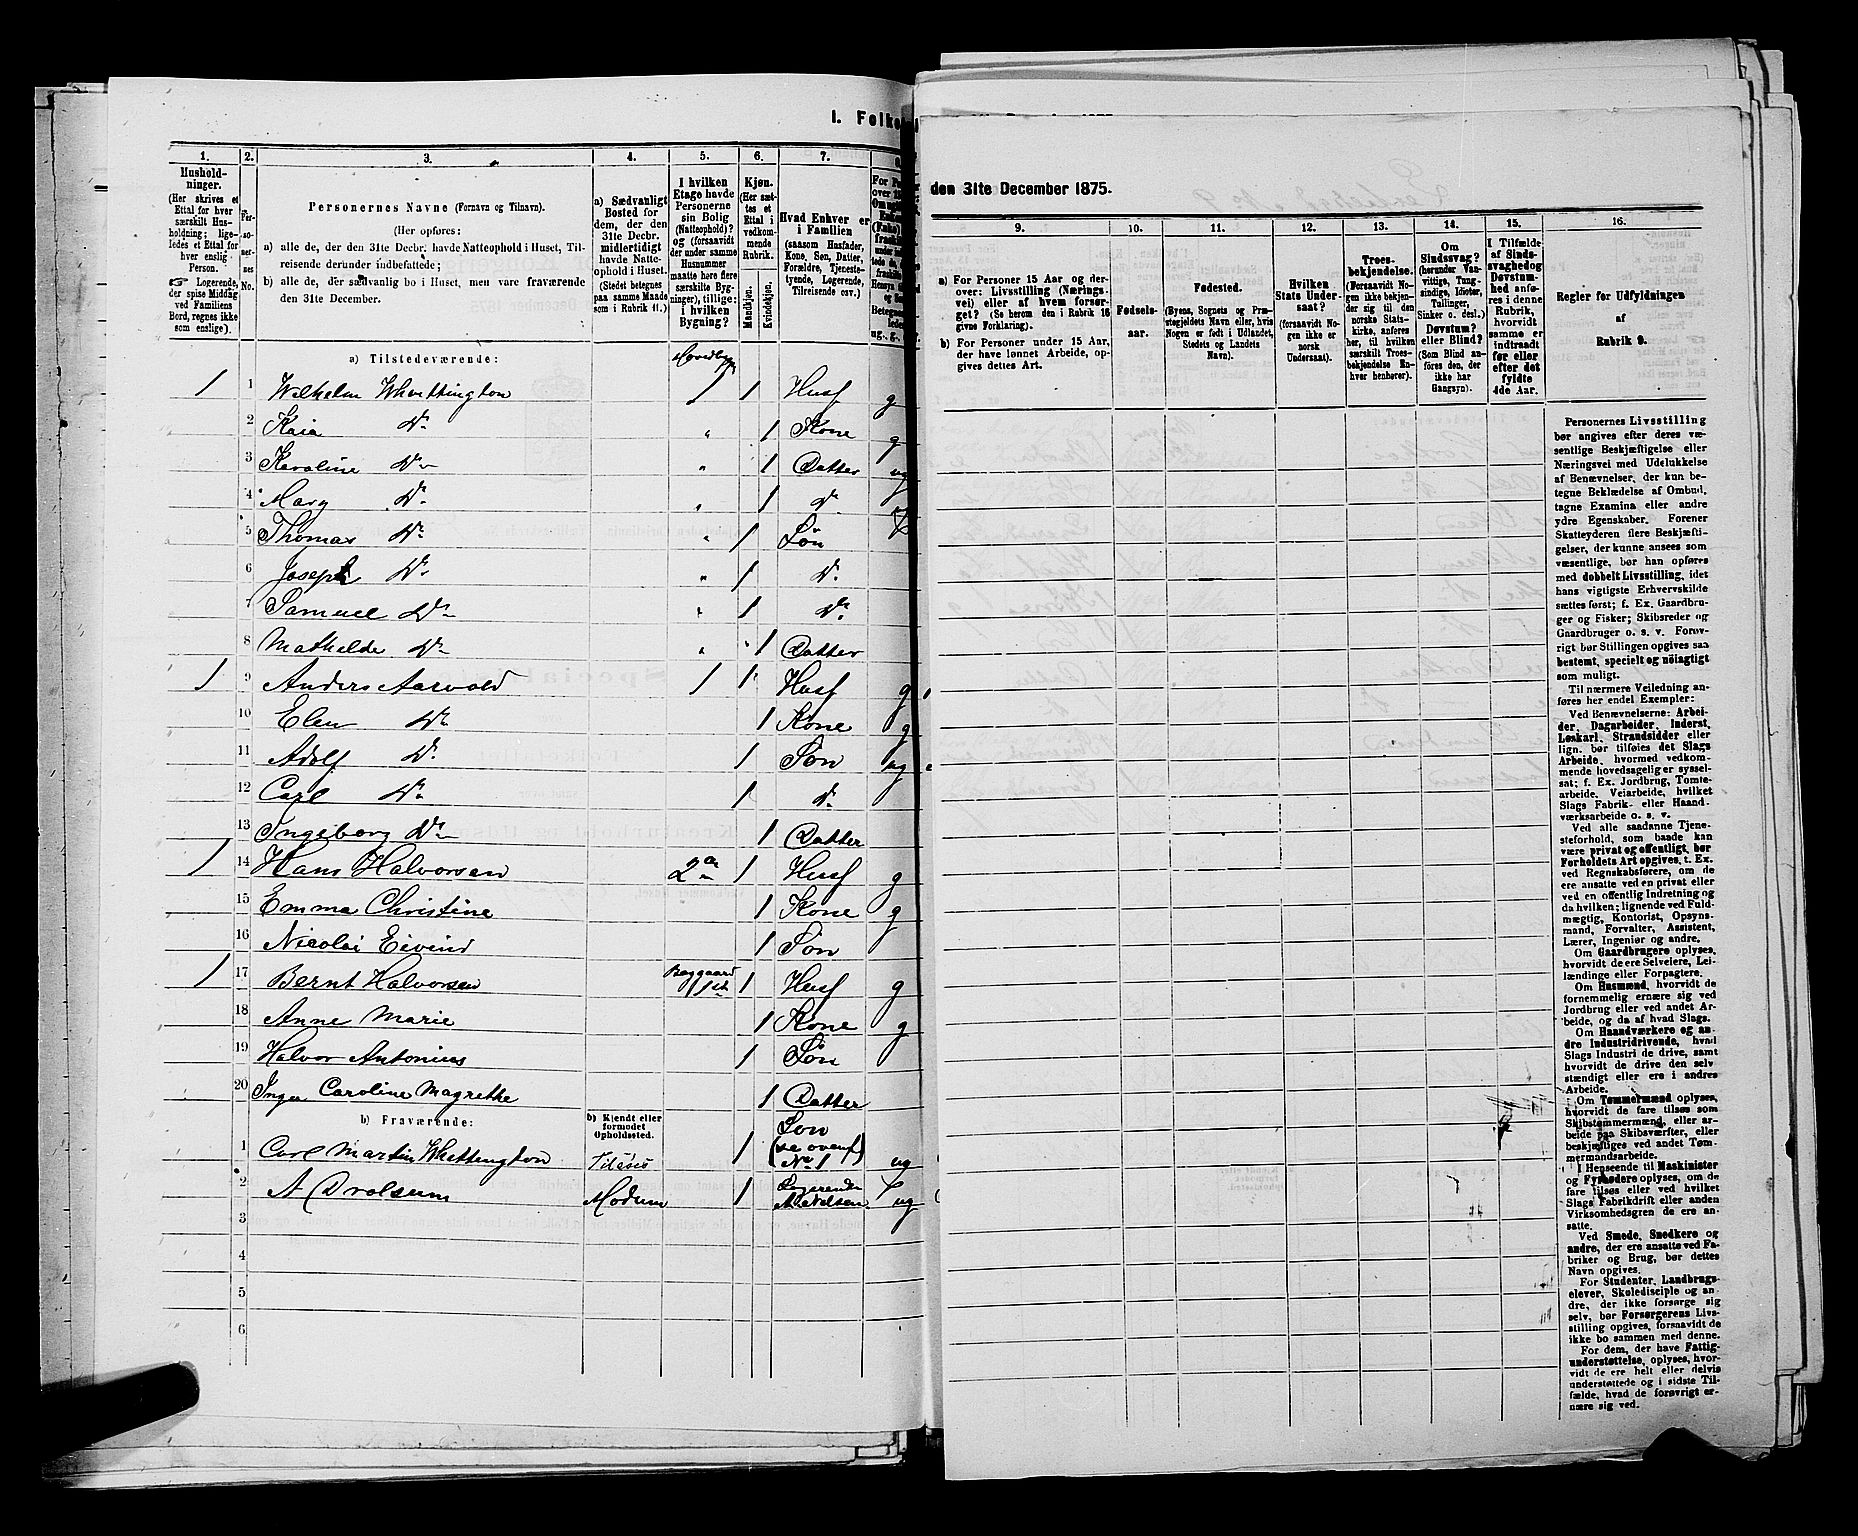 I. Folke
1.
2.
3.
4.
5.
6.
7.
Hushold-
ninger.
(Her skrives et
Ettal for hver
særskilt Hus-
holdning; lige-
ledes et Ettal for
hver enslig
Person.
Logerende,
der spise Middag
ved Familiens
Bord, regnes ikke
som enslige).
Per-
soner-
nes
No.
Personernes Navne (Fornavn og Tilnavn).
(Her opføres:
a) alle de, der den 31te Decbr. havde Natteophold i Huset, Til-
reisende derunder indbefattede;
b) alle de, der sædvanlig bo i Huset, men vare fraværende
den 31te December.
a) Sædvanligt
Bosted for
dem, der den
31te Decbr.
midlertidigt
havde Natte-
ophold i Huset.
(Stedet betegnes
paa samme Maade
som i Rubrik 11.)
I hvilken
Etage havde
Personerne
sin Bolig
(Natteophold)?
og (forsaavidt
der under samme
Husnummer
maatte høre flere
særskilte Byg-
ninger), tillige:
i hvilken
Bygning?
Kjøn.
(Her sæt-
tes et
Ettal i
vedkom-
mende
Rubrik.
Mandkjøn.
Kvindekjøn.
Hvad Enhver er
i Familien
(saasom Husfader,
Kone, Søn, Datter,
Forældre, Tjeneste-
tyende, Logerende,
Tilreisende osv.)
a) Tilstedeværende:
1 1 Wilhelm Whettington 1 1 Husf g
2 Kaia Do " 1 Kone g
3 Karoline Do " 1 Datter ug
4 Mary Do " 1 do
5 Thomas Do " 1 Søn
6 Joseph Do " 1 do
7 Samuel Do " 1 do
8 Mathelde Do " 1 Datter
1 9 Anders Aasvold 1 1 Husf g
10 Elen Do 1 Kone g
11 Adolf Do 1 Søn ug
12 Carl Do 1 do
13 Ingeborg Do 1 Datter
1 14 Hans Halvorsen 2 1 Husf g
15 Emma Christine 1 Kone g
16 Nicolai Eivind 1 Søn
1 17 Bernt Halvorsen Baggaard 1 Husf g
18 Anne Marie 1 Kone g
19 Halvor Antonius 1 Søn
20 Inga Caroline Magrethe 1 Datter
b) Fraværende:
b) Kjendt eller
formodet
Opholdssted.
1 Carl Martin Whettington 1 Søn (se ovenf No 1) ug
2 A Drolsum Modum 1 Logerende ug
3
4
5
6
den 31te December 1875.
9.
10.
11.
12.
13.
14.
15.
16.
a) For Personer 15 Aar og der-
over: Livsstilling (Nærings-
vei) eller af hvem forsør-
get? (Se herom den i Rubrik 16
givne Forklaring).
b) For Personer under 15 Aar,
der have lønnet Arbeide, op-
gives dettes Art.
Fødsels-
aar.
Fødested.
(Byens, Sognets og Præ-
stegjeldets Navn eller, hvis
Nogen er født i Udlandet,
Stedets og Landets
Navn).
Hvilken
Stats Under-
saat?
(forsaavidt No-
gen ikke er
norsk
Undersaat).
Troes-
bekjendelse.
(Forsaavidt No-
gen ikke bekjen-
der sig til den
norske Stats-
kirke, anføres
her, til hvilken
særskilt Troes-
bekjendelse En-
hver henhører).
Om
Sindssvag?
(herunder Van-
vittige, Tung-
sindige, Idioter,
Tullinger,
Sinker o. desl.)
Døvstum?
eller Blind?
(Som Blind an-
føres den, der
ikke har
Gangsyn).
I Tilfælde
af Sinds-
svaghed og
Døvstum-
hed anfø-
res i denne
Rubrik,
hvorvidt
samme er
indtraadt
før eller
efter det
fyldte
4de Aar.
Regler for Udfyldningen
af
Rubrik 9.
Personernes Livsstilling
bør angives efter deres væ-
sentlige Beskjæftigelse eller
Næringsvei med Udelukkelse
af Benævnelser, der kun be-
tegne Beklædelse af Ombud,
tagne Examina eller andre
ydre Egenskaber. Forener
Skatteyderen flere Beskjæfti-
gelser, der kunne ansees som
væsentlige, bør han opføres
med dobbelt Livsstilling, idet
hans vigtigste Erhvervskilde
sættes først; f. Ex. Gaardbru-
ger og Fisker; Skibsreder og
Gaardbruger o. s. v. Forøv-
rigt bør Stillingen opgives saa
bestemt, specielt og nøiagtigt
som muligt.
Til nærmere Veiledning an-
føres her endel Exempler:
Ved Benævnelserne: Arbei-
der, Dagarbeider, Inderst,
Løskarl, Strandsidder eller
lign. bør tilføies det Slags
Arbeide, hvormed vedkom-
mende hovedsagelig er syssel-
sat; f. Ex. Jordbrug, Tomte-
arbeide, Veiarbeide, hvilket
Slags Fabrik- eller Haand-
værksarbeide o. s. v.
Ved alle saadanne Tjene-
steforhold, som baade kan
være privat og offentligt, bør
Forholdets Art opgives, t. Ex.
ved Regnskabsførere, om de
ere ansatte ved en privat eller
ved en offentlig Indretning og
da hvilken; lignende ved Fuld-
mægtig, Kontorist, Opsyns-
mand, Forvalter, Assistent,
Lærer, Ingeniør og andre.
Om Gaardbrugere oplyses,
hvorvidt de ere Selveiere, Lei-
lændinge eller Forpagtere.
Om Husmænd, hvorvidt de
fornemmelig ernære sig ved
Jordbrug eller ved andet Ar-
beide, og da af hvad Slags.
Om Haandværkere og an-
dre Industridrivende, hvad
Slags Industri de drive, samt
hvorvidt de drive den selv
stændigt eller ere i andres
Arbeide.
Om Tømmermænd oplyses,
hvorvidt de fare tilsøs som
Skibstømmermænd, eller ar-
beide paa Skibsværfter, eller
beskjæftiges ved andet Tøm-
mermandsarbeide.
I Henseende til Maskinister
og Fyrbødere oplyses, om de
fare tilsøs eller ved hvilket
Slags Fabrikdrift eller anden
Virksomhedsgren de ere an-
satte.
Ved Smede, Snedkere og
andre, der ere ansatte ved Fa-
briker og Brug, bør dettes
Navn opgives.
For Studenter, Landbrugs-
elever, Skoledisciple og an-
dre, der ikke forsørge sig
selv, bør Forsørgerens Livs-
stilling opgives, forsaavidt de
ikke bo sammen med denne.
For dem, der have Fattig-
understøttelse, oplyses, hvor-
vidt de ere helt eller delvis
understøttede og i sidste Til-
fælde, hvad de forøvrigt er-
nære sig ved.